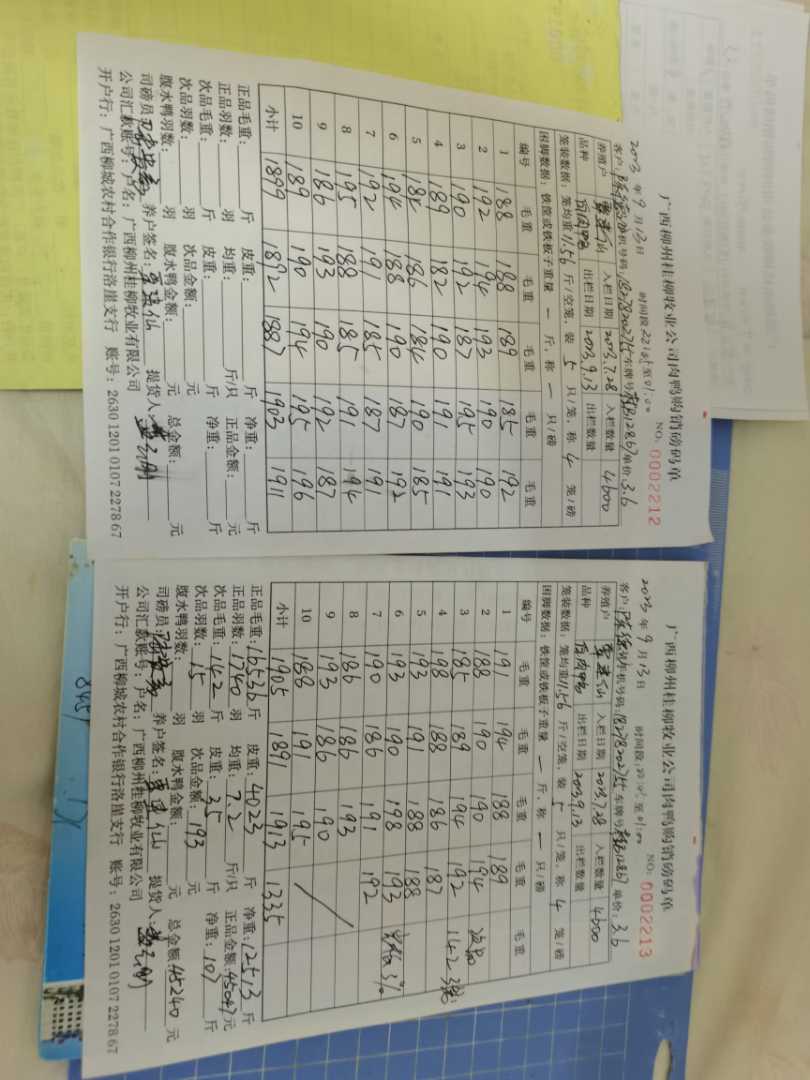 广西柳州桂柳牧业公司肉鸭购销磅码单
NO: 0002212
2023 年 9 月 13 日 时间段
机号码: 车牌号 单价: 3.6
养殖户 入栏日期 2023.7.28 入栏数量 4600
品种 白肉鸭 出栏日期 2023.9.13 出栏数量
笼装数据: 笼均重 11.56 斤/空笼, 装 5 只/笼, 称 4 笼/磅
困脚数据: 铁筐或铁板子重量 一 斤, 称 一 只/磅
编号 毛重 毛重 毛重 毛重 毛重
1 188 188 189 185 192
2 192 194 193 190 190
3 190 192 187 195 193
4 189 182 190 191 191
5 184 186 184 190 185
6 194 188 190 187 192
7 192 191 185 187 191
8 195 188 185 191 194
9 186 193 190 192 187
10 189 190 194 195 196
小计 1899 1892 1887 1903 1911
正品毛重: 斤 皮重: 斤 净重: 斤
正品羽数: 羽 均重: 斤/只 正品金额: 元
次品毛重: 斤 皮重: 斤 净重: 斤
次品羽数: 羽 次品金额: 元
腹水鸭羽数: 羽 腹水鸭金额: 元 总金额: 元
司磅员: 养户签名: 提货人:
公司汇款账号: 户名: 广西柳州桂柳牧业有限公司
开户行: 广西柳城农村合作银行洛崖支行 账号: 2630 1201 0107 2278 67
广西柳州桂柳牧业公司肉鸭购销磅码单
NO: 0002213
2023 年 9 月 13 日 时间段:
客户: 机号码: 车牌号 单价: 3.6
养殖户 入栏日期 2023.7.28 入栏数量 4600
品种 白肉鸭 出栏日期 2023.9.13 出栏数量
笼装数据: 笼均重 11.56 斤/空笼, 装 5 只/笼, 称 4 笼/磅
困脚数据: 铁筐或铁板子重量 一 斤, 称 一 只/磅
编号 毛重 毛重 毛重 毛重 毛重
1 191 194 188 189
2 188 190 190 194 次品
3 185 189 194 192 142 3笼
4 198 188 186 187
5 193 191 188 188
6 193 190 198 193 3%
7 190 186 191 192
8 186 186 193
9 193 186 190
10 188 191 195
小计 1905 1891 1913 1335
正品毛重: 16536 斤 皮重: 4023 斤 净重: 12513 斤
正品羽数: 1740 羽 均重: 7.2 斤/只 正品金额: 45047 元
次品毛重: 142 斤 皮重: 35 斤 净重: 107 斤
次品羽数: 15 羽 次品金额: 193 元
腹水鸭羽数: 羽 腹水鸭金额: 元 总金额: 45240 元
司磅员: 养户签名: 提货人:
公司汇款账号: 户名: 广西柳州桂柳牧业有限公司
开户行: 广西柳城农村合作银行洛崖支行 账号: 2630 1201 0107 2278 67